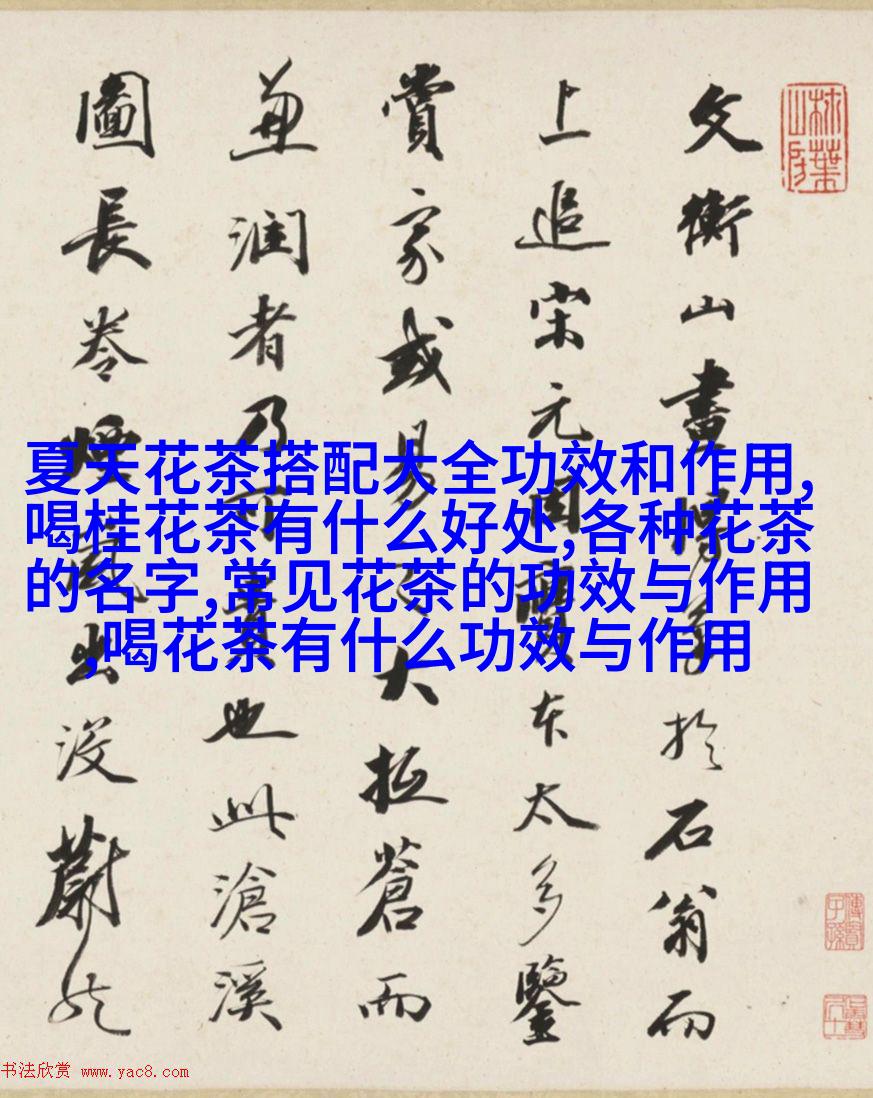 文衡山書於石翁而
上追宋元本太多鑒
賞家或易大拙蒼而
兼潤者乃可貴也此滄溪
圖長卷煙嵐出没蔚然
夏天花茶搭配大全功效和作用,
喝桂花茶有什么好处,各种花茶
的名字,常见花茶的功效与作用
,喝花茶有什么功效与作用
书法欣赏 www.yac8.com